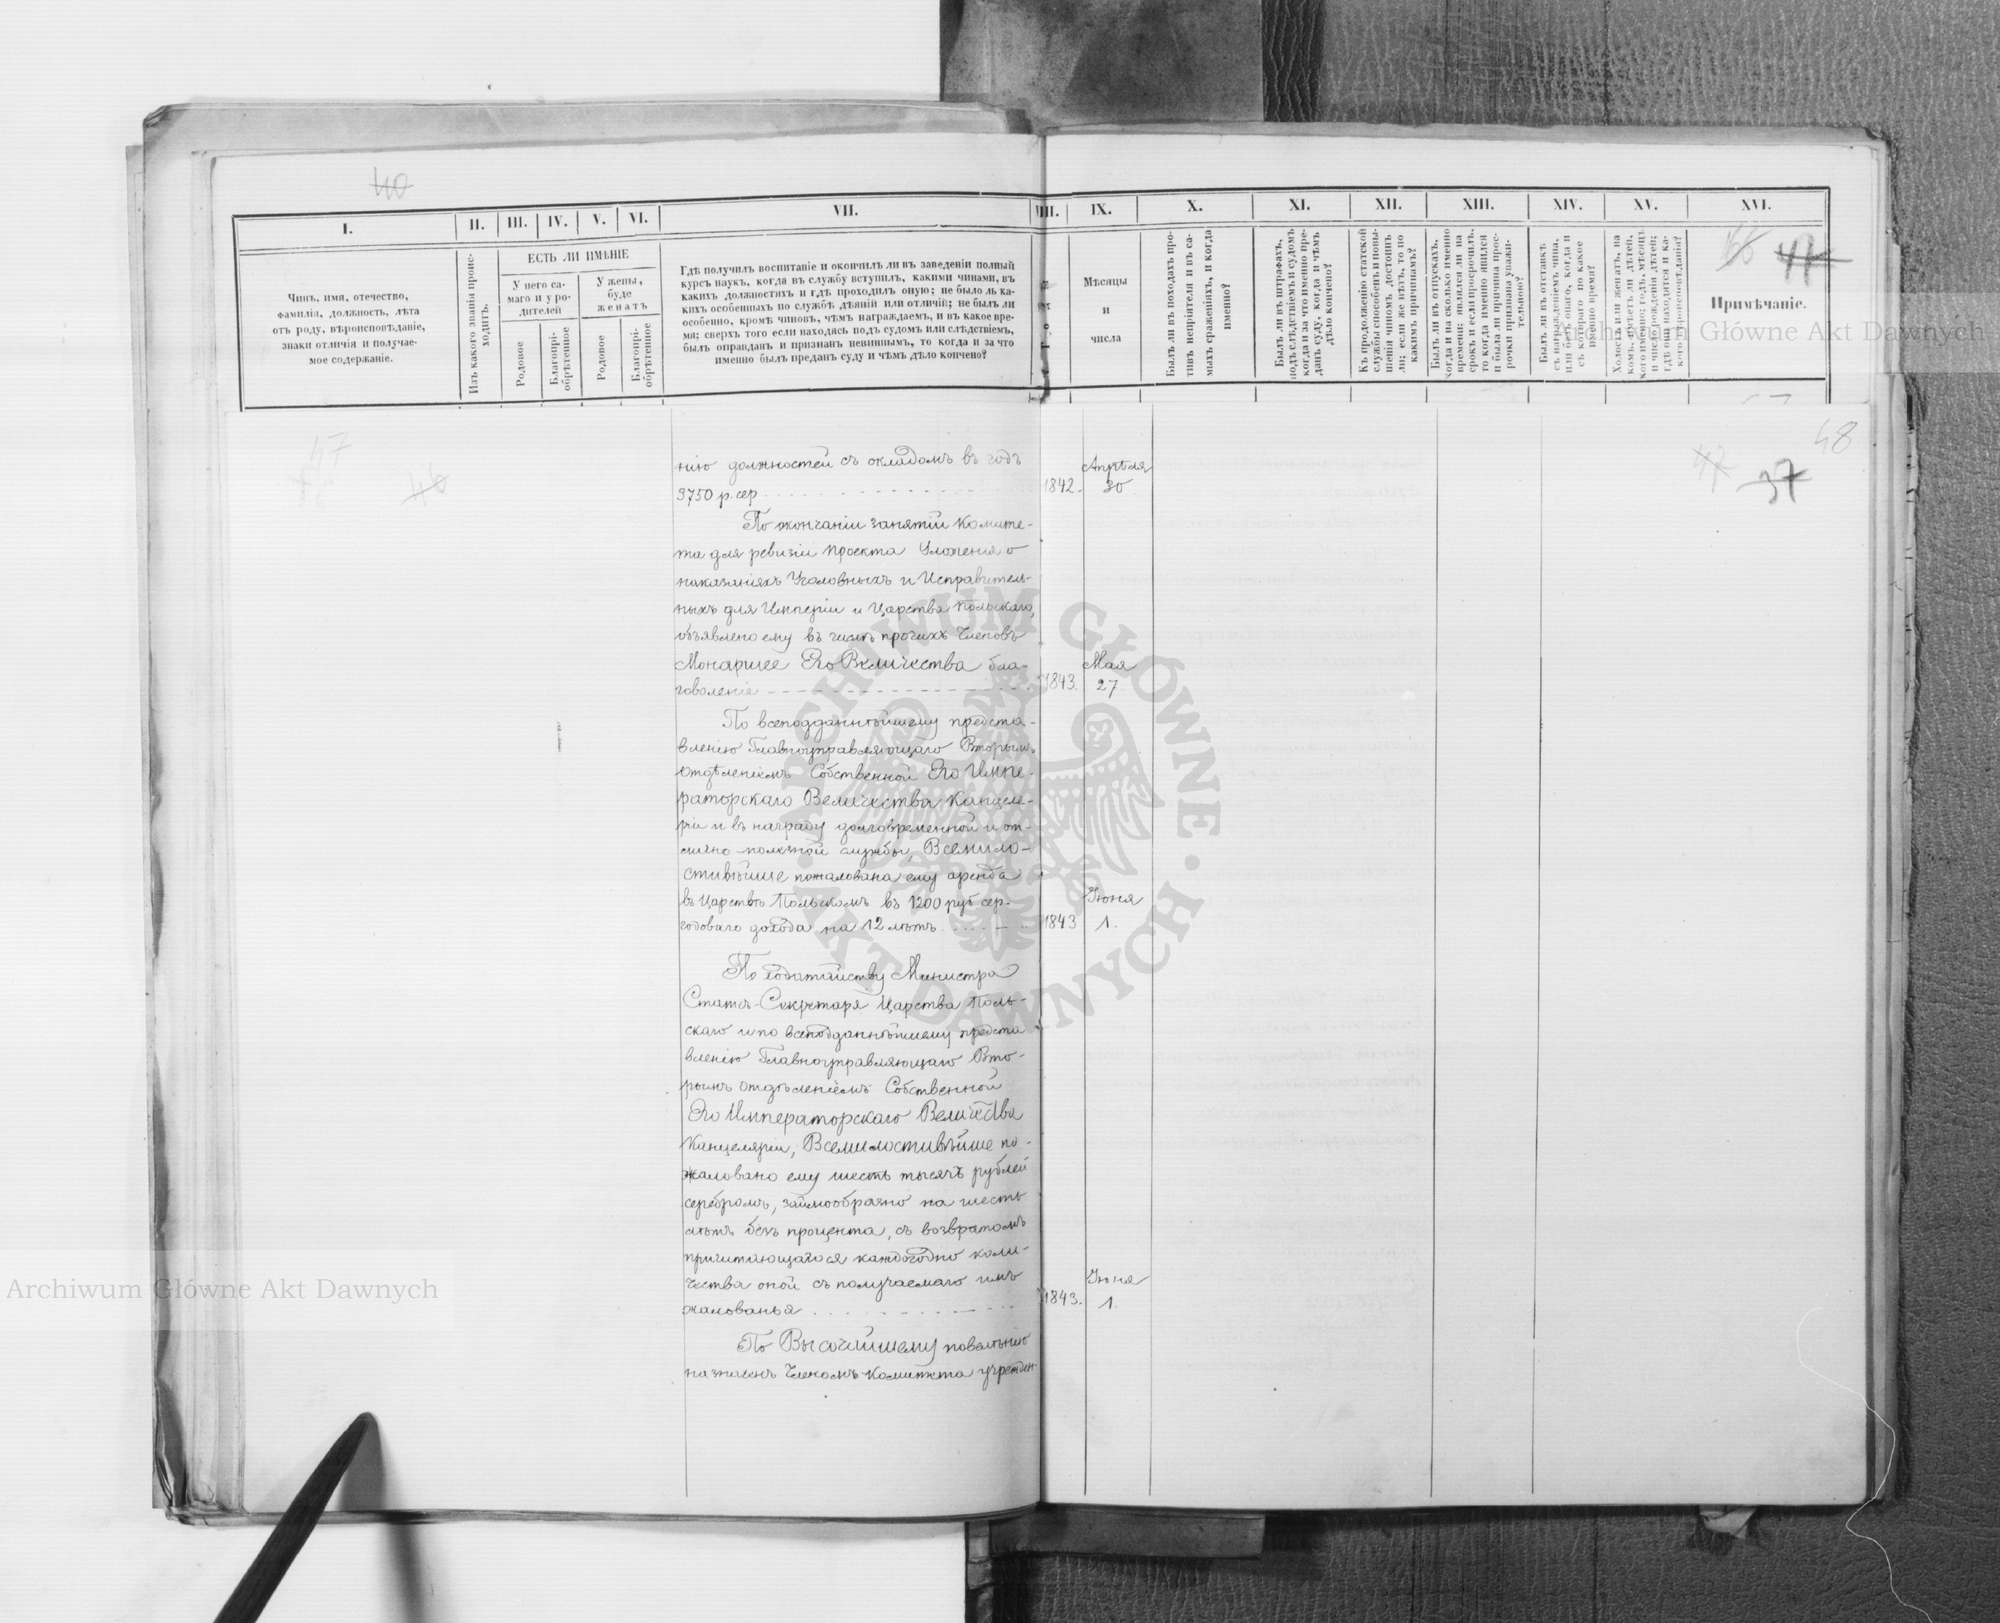 40
I.
II.
III.
IV.
V.
VI.
VII.
VIII.
IX.
X.
XI.
XII.
XIII.
XIV.
XV.
XVI.
Чинъ, имя, отечество,
фамилія, должность, лѣта
отъ роду, вѣроисповѣданіе,
знаки отличія и получае-
мое содержаніе.
Изъ какого званія проис-
ходитъ.
ЕСТЬ ЛИ ИМѢНІЕ
У него са-
маго и у ро-
дителей
У жены,
буде
женатъ
Родовое
Благопрі-
обрѣтенное
Родовое
Благопрі-
обрѣтенное
Гдѣ получилъ воспитаніе и окончилъ ли въ заведеніи полный
курсъ наукъ, когда въ службу вступилъ, какими чинами, въ
какихъ должностяхъ и гдѣ проходилъ оную; не было ль ка-
кихъ особенныхъ по службѣ дѣяній или отличій; не былъ ли
особенно, кромѣ чиновъ, чѣмъ награждаемъ, и въ какое вре-
мя; сверхъ того если находясь подъ судомъ или слѣдствіемъ,
былъ оправданъ и признанъ невиннымъ, то когда и за что
именно былъ преданъ суду и чѣмъ дѣло кончено?
Мѣсяцы
и
числа
Былъ ли въ походахъ про-
тивъ непріятеля и въ са-
мыхъ сраженіяхъ, и когда
именно?
Былъ ли въ штрафахъ,
подъ слѣдствіемъ и судомъ
когда и за что именно пре-
данъ суду, когда и чѣмъ
дѣло кончено?
Къ продолженію статской
службы способенъ и повы-
шенія чиномъ достоинъ
ли; если же нѣтъ, то по
какимъ причинамъ?
Былъ ли въ отпускахъ,
когда и на сколько именно
времени; явился ли на
срокъ и если просрочилъ,
то когда именно явился
и была ли причина прос-
рочки признана уважи-
тельною?
Былъ ли въ отставкѣ
съ награжденіемъ чина,
или безъ онаго, когда и
съ котораго по какое
именно время?
Холостъ или женатъ, на
комъ, имѣетъ ли дѣтей,
кого именно; годъ, мѣсяцъ
и число рожденія дѣтей;
гдѣ они находятся и ка-
кого вѣроисповѣданія?
166 47
Примѣчаніе.
47
46
48
47
37
нію должностей съ окладомъ въ годъ
3750 р. сер. 1842. Апрѣля 30
По окончаніи занятій Комите-
та для ревизіи проекта Уложенія о
наказаніяхъ Уголовныхъ и Исправитель-
ныхъ для Имперіи и Царства Польскаго,
объявлено ему въ числѣ прочихъ Членовъ
Монаршее Его Величества бла-
говоленіе 1843. Мая 27
По всеподданнѣйшему предста-
вленію Главноуправляющаго Вторымъ
Отдѣленіемъ Собственной Его Импе-
раторскаго Величества Канцеля-
ріи и въ награду долговременной и от-
лично полезной службы, Всемило-
стивѣйше пожалована ему аренда
въ Царствѣ Польскомъ въ 1200 руб сер.
годоваго дохода на 12 лѣтъ 1843 Іюня 1.
По ходатайству Министра
Статсъ-Секретаря Царства Поль-
скаго и по всеподданнѣйшему предста
вленію Главноуправляющаго Вто-
рымъ Отдѣленіемъ Собственной
Его Императорскаго Величества
Канцеляріи, Всемилостивѣйше по-
жаловано ему шесть тысячъ рублей
серебромъ, заимообразно на шесть
лѣтъ безъ процента, съ возвратомъ
причитающагося каждогодно коли-
чества оной съ получаемаго имъ
жалованья 1843. Іюня 1.
По Высочайшему повелѣнію
назначенъ Членомъ Комитета учрежден-
ARCHIWUM GŁÓWNE · AKT DAWNYCH ·
Archiwum Główne Akt Dawnych
Archiwum Główne Akt Dawnych